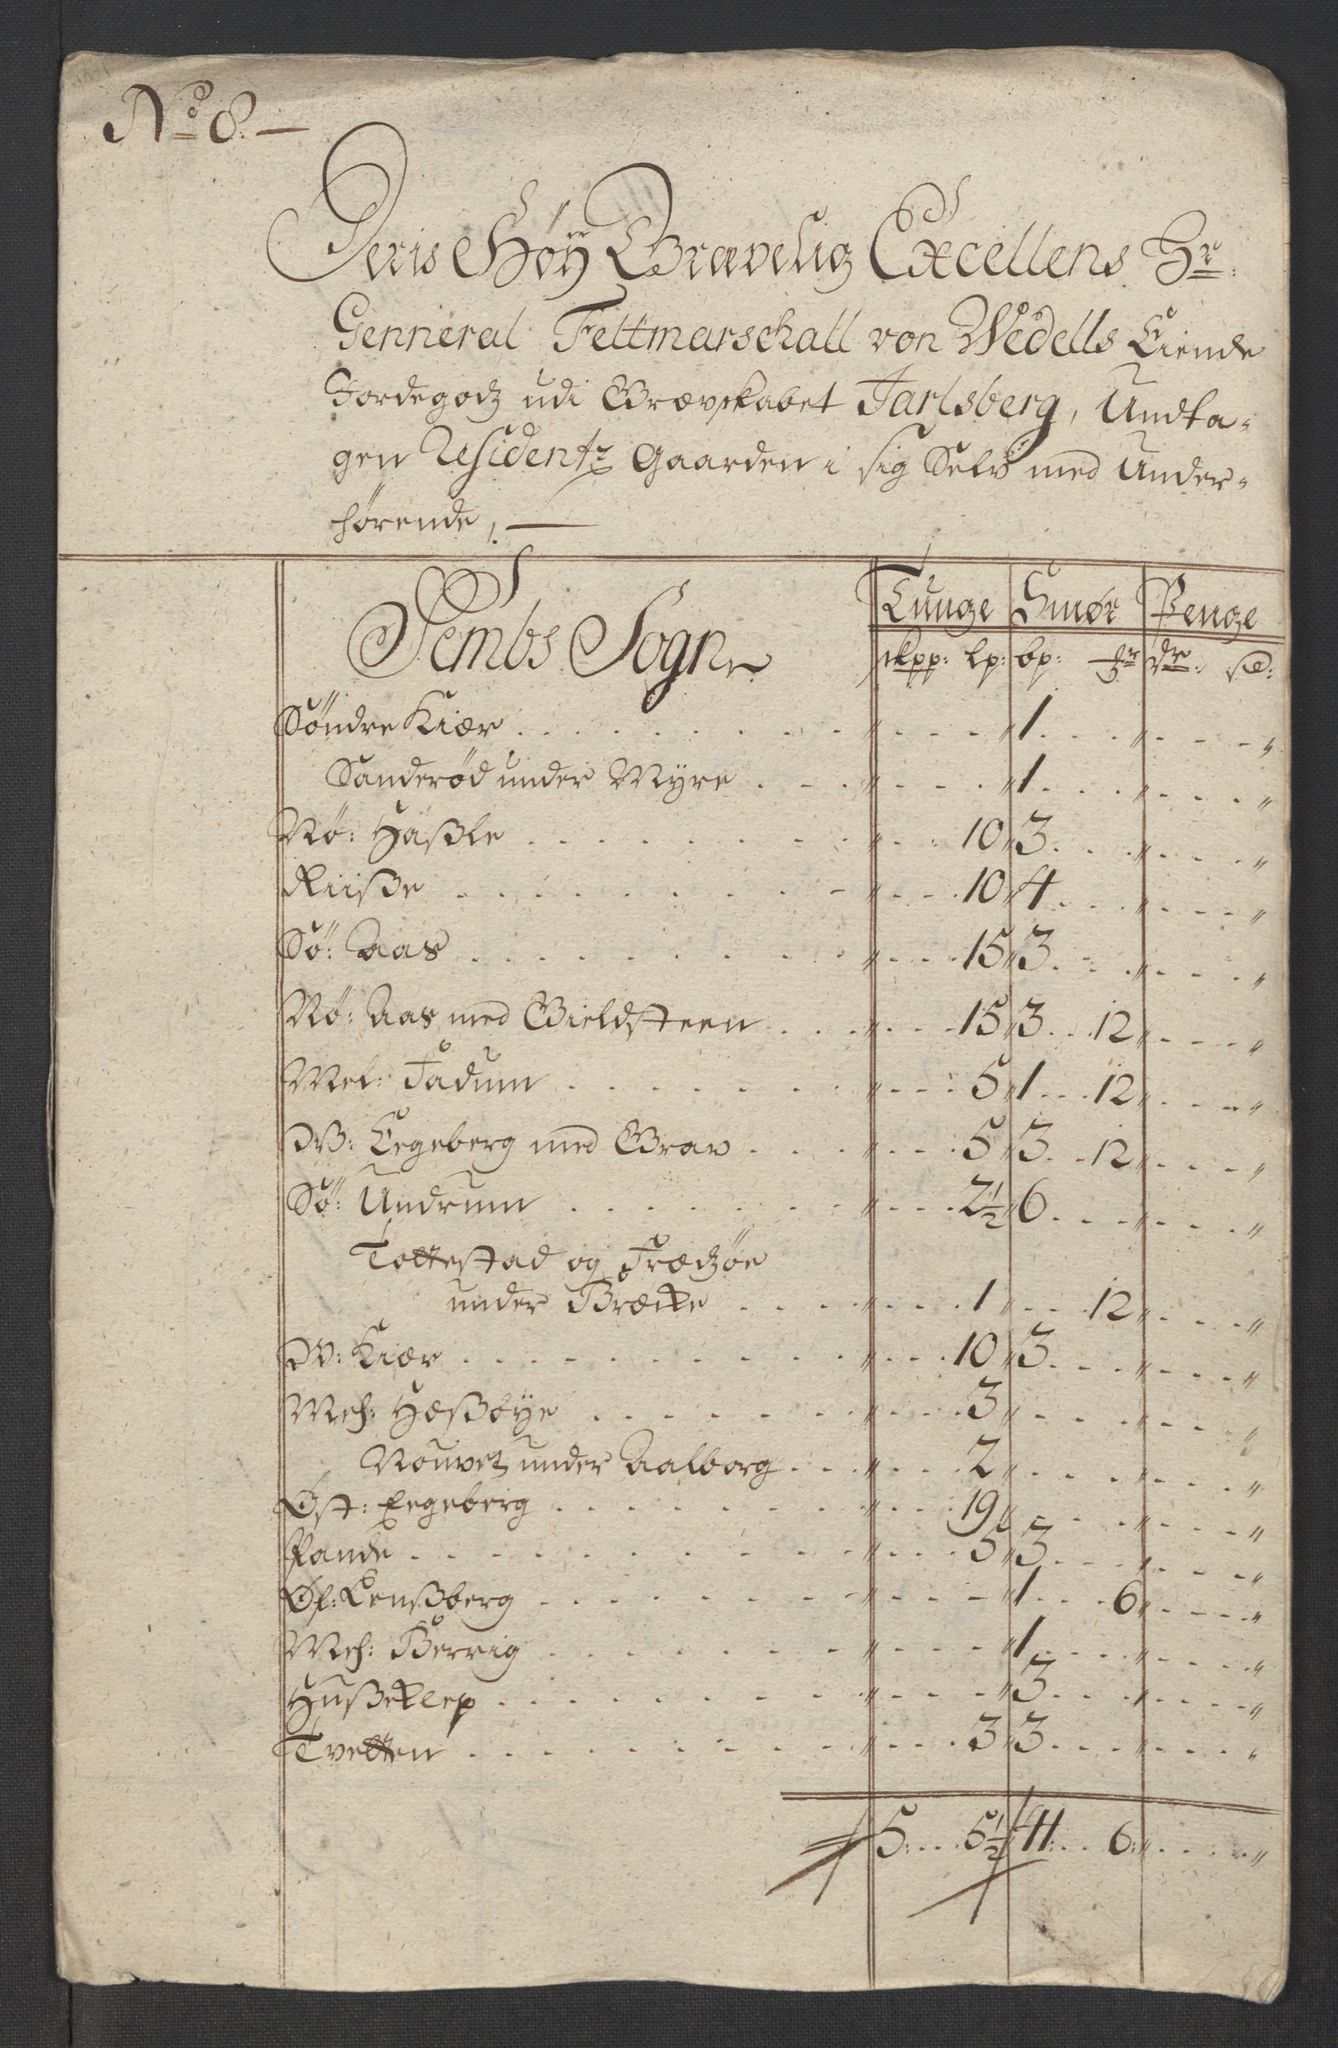 No 8.
Deris Høy Grævelig Excellens Hr:
Genneral Feltmarschall von Wedells Eiende
Jordegodz udi Grævskabet Jarlsberg, Undta-
gen Residentz Gaarden i sig Selv med Under-
hørende,
Sembs Sogn
Tunge Smør Penge
skpp: lp: bp: mr dr: sk:
Søndre Kiær . . . " . . . " 1 . . . " . . . "
Sanderød under Myre . . . " . . . " 1 . . . " . . . "
Nø: Haßle . . . " . . . 10 " 3 . . . " . . . "
Riiße . . . " . . . 10 " 4 . . . " . . . "
Sø: Aas . . . " . . . 15 " 3 . . . " . . . "
Nø: Aas med Gieldsteen . . . " . . . 15 " 3 . . . 12 " . . . "
Mel: Fadum . . . " . . . 5 " 1 . . . 12 " . . . "
W: Eegeberg med Grav . . . " . . . 5 " 3 . . . 12 " . . . "
Sø: Undrum . . . " . . . 2½ " 6 . . . " . . . "
Tottestad og Trædzøe
under Bræcke . . . " . . . 1 " . . . 12 " . . . "
W: Kiær . . . " . . . 10 " 3 . . . " . . . "
Mel: Hæßbÿe . . . " . . . 3 " . . . " . . . "
Rouvet under Aalborg . . . " . . . 2 " . . . " . . . "
Øst: Eegeberg . . . " . . . 19 " . . . " . . . "
Rande . . . " . . . 5 " 3 . . . " . . . "
Øf: Lenßberg . . . " . . . " 1 . . . 6 " . . . "
Mel: Berrig . . . " . . . " 1 . . . " . . . "
Hußeklep . . . " . . . " 3 . . . " . . . "
Tvetten . . . " . . . 3 " 3 . . . " . . . "
5 . . . 5½ " 41 . . . 6 " . . . "